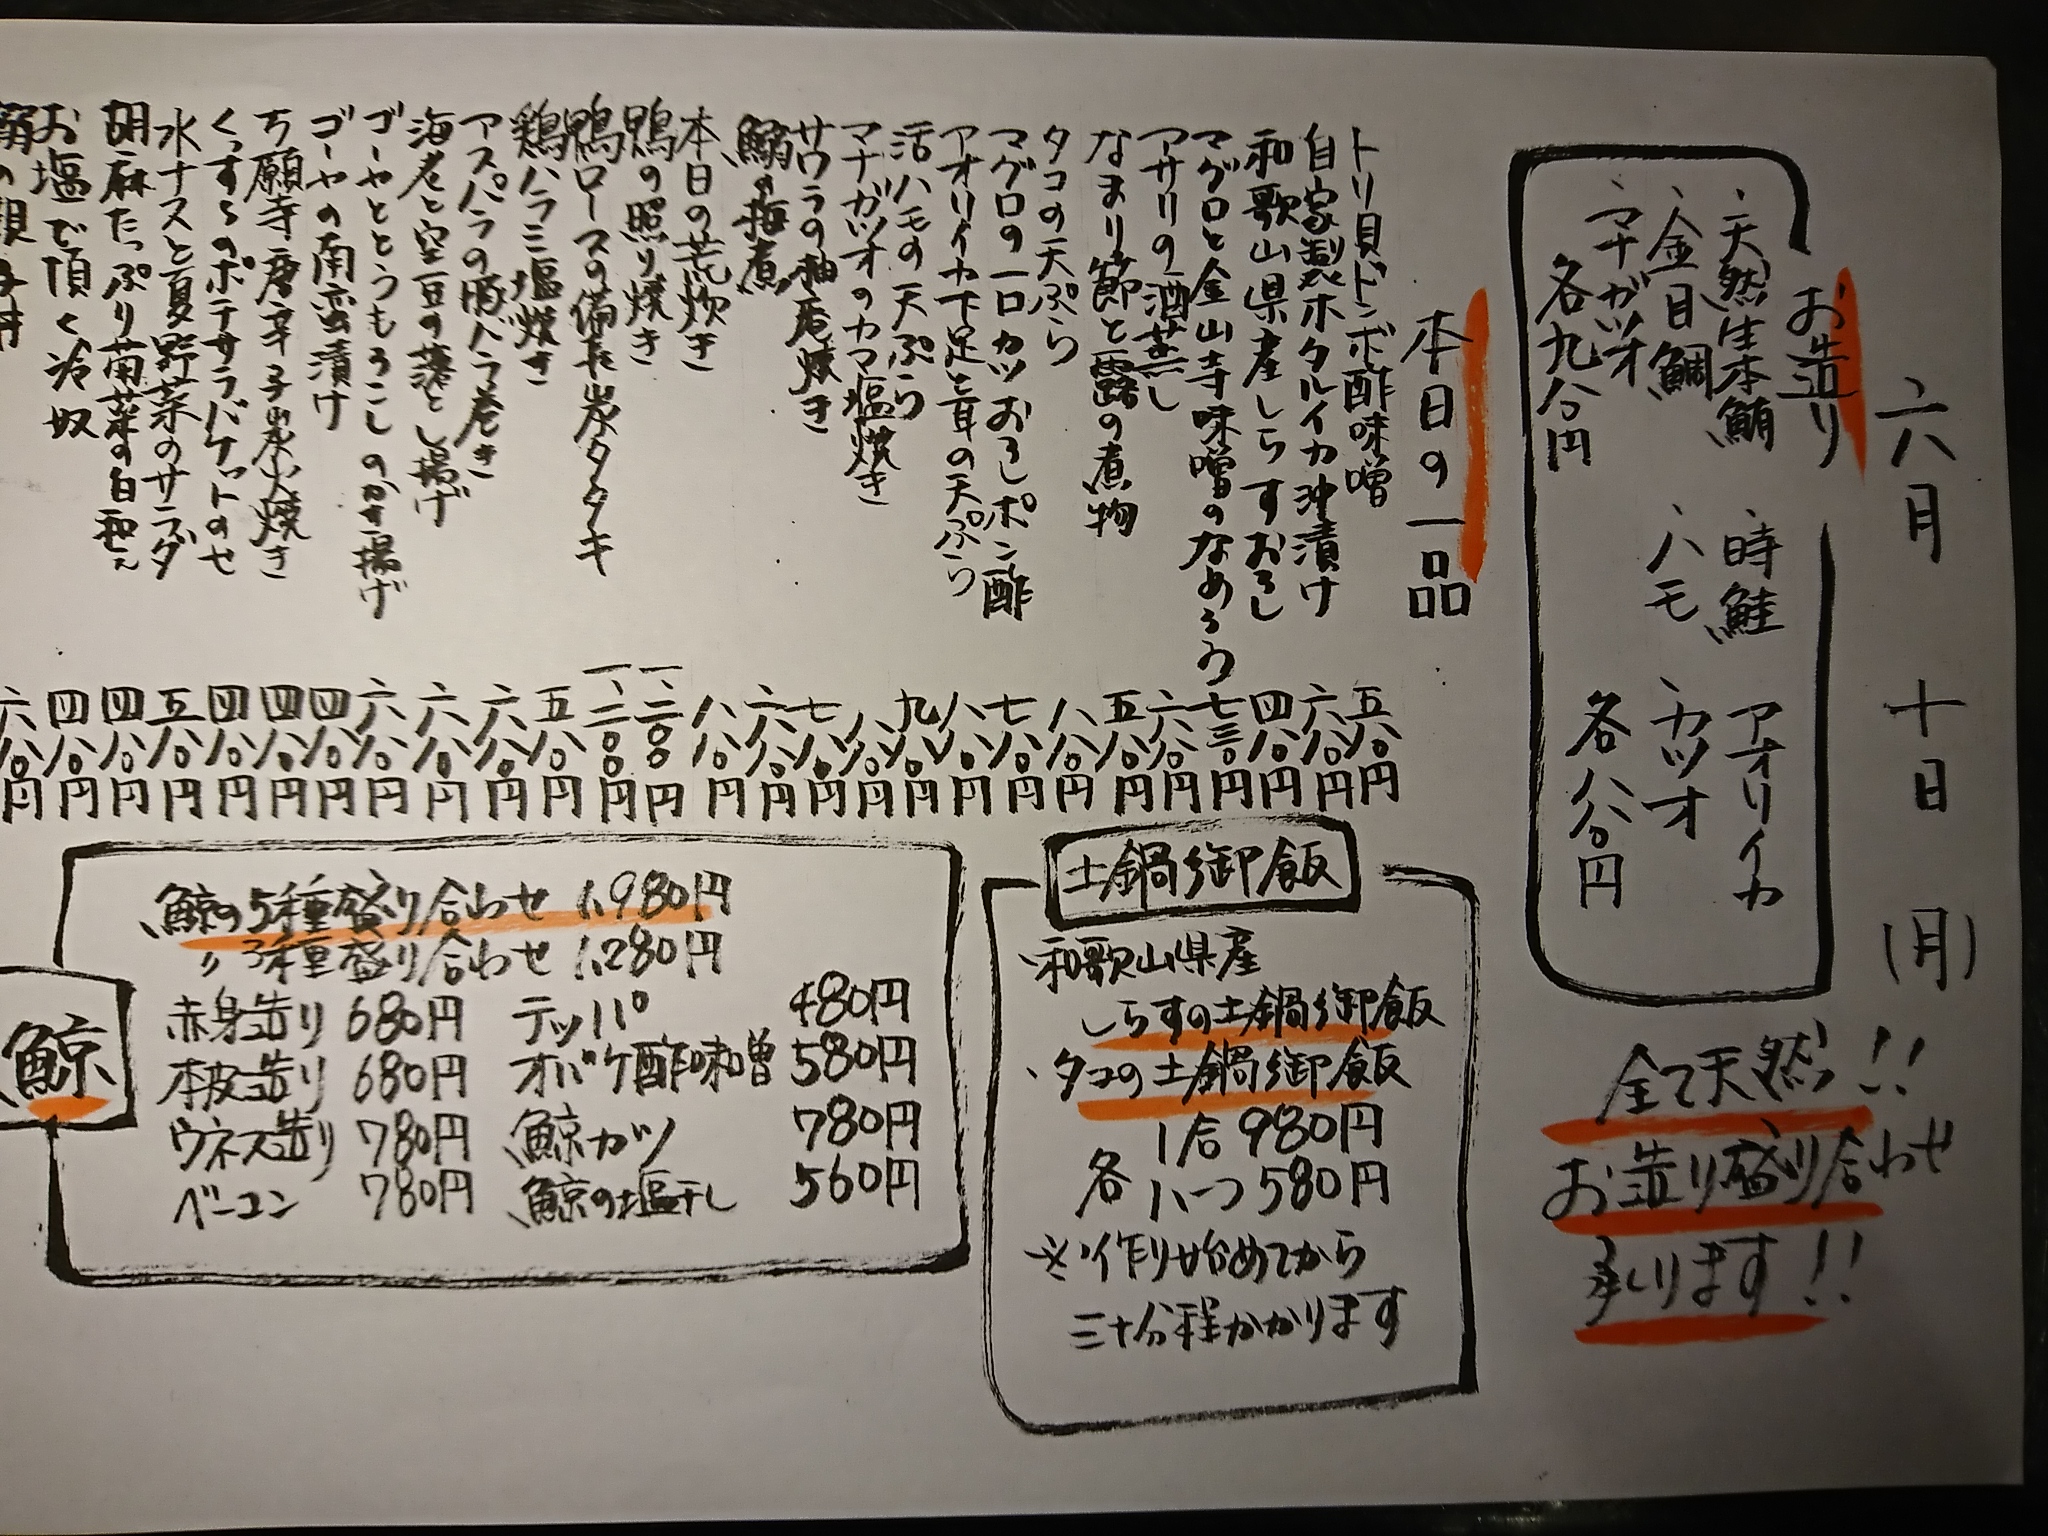 六月 十日 (月)
お造り
、天然生本鮪 、時鮭 アオリイカ
、金目鯛 、ハモ 、カツオ
、マナガツオ
各九八〇円 各八八〇円
全て天然!!
お造り盛り合わせ
承ります!!
本日の一品
トリ貝ドンボ酢味噌 五八〇円
自家製ホタルイカ沖漬け 六八〇円
和歌山県産しらすおろし 四八〇円
マグロと金山寺味噌のなめろう 七三〇円
アサリの酒蒸し 六八〇円
なまり節と露の煮物 五八〇円
タコの天ぷら 八八〇円
マグロの一口カツおろしポン酢 七八〇円
アオリイカ下足と耳の天ぷら 八八〇円
活ハモの天ぷら 九八〇円
マナガツオのカマ塩焼き 八八〇円
サワラの柚庵焼き 七八〇円
鰯の梅煮 六八〇円
本日の荒炊き 八八〇円
鴨の照り焼き 一、二〇〇円
鴨ロースの備長炭タタキ 一、二〇〇円
鶏ハラミ塩焼き 五八〇円
アスパラの豚バラ巻き 六八〇円
海老と空豆の落とし揚げ 六八〇円
ゴーヤととうもろこしのかき揚げ 六八〇円
ゴーヤの南蛮漬け 四八〇円
万願寺唐辛子炭火焼き 四八〇円
くんすらのポテサラバケットのせ 四八〇円
水ナスと夏野菜のサラダ 五八〇円
胡麻たっぷり菊菜の白和え 四八〇円
お塩で頂く冷奴 四八〇円
六八〇円
土鍋御飯
・和歌山県産
しらすの土鍋御飯
・タコの土鍋御飯
各 1合 980円
ハーフ 580円
※作り始めてから
三十分程かかります
鯨
鯨の5種盛り合わせ 1,980円
〃 3種盛り合わせ 1,280円
赤身造り 680円 テッパ 480円
本皮造り 680円 オバケ酢味噌 580円
ウネス造り 780円 鯨カツ 780円
ベーコン 780円 鯨の塩干し 560円